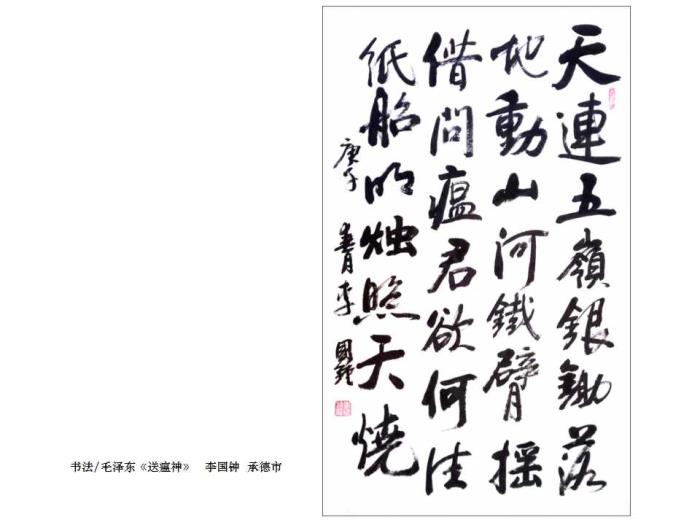 天連五嶺銀鋤落
地動山河鐵臂摇
借問瘟君欲何往
紙船明烛照天燒
庚子 春月 李國鐘
书法/毛泽东《送瘟神》 李国钟 承德市